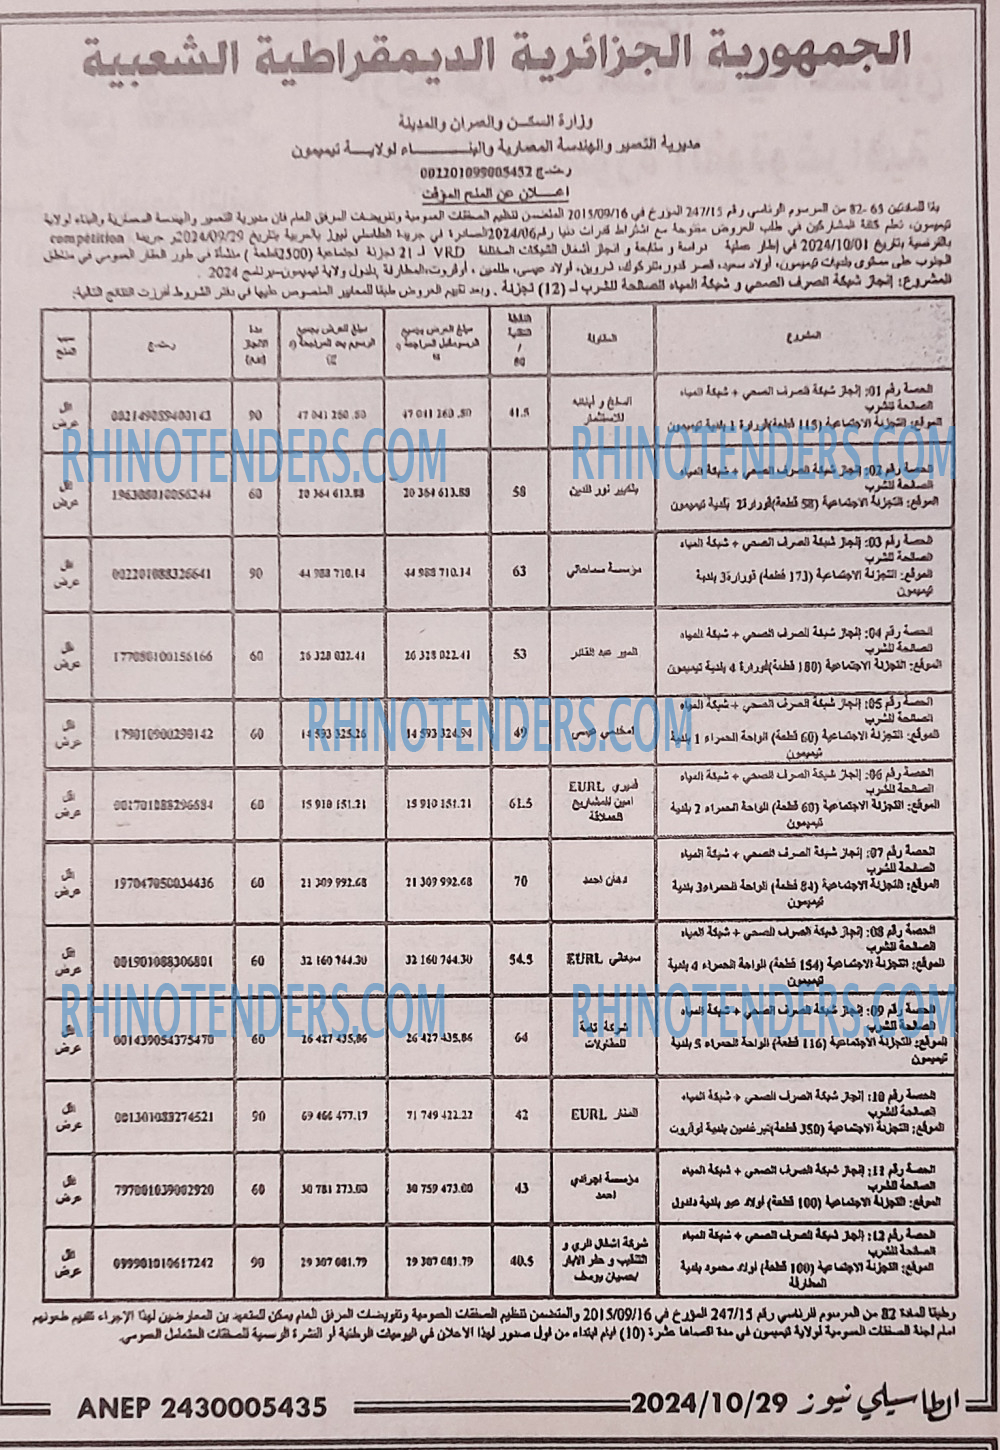 الجمهورية الجزائرية الديمقراطية الشعبية
وزارة السكن والعمران والمدينة
مديرية التعمير والهندسة المعمارية والبناء لولاية تيميمون
رت.ج 002201099005452
إعلان عن المنح المؤقت
بقا للمادتين 65- 82 من المرسوم الرئاسي رقم 247/15 المؤرخ في 2015/09/16 المتضمن تنظيم الصفقات العمومية وتفويضات المرفق العام فان مديرية التعمير والهندسة المعمارية والبناء لولاية
تيميمون، تعلم كافة المشاركين في طلب العروض مفتوحة مع اشتراط قدرات دنيا رقم 2024/06الصادرة في جريدة الطاسلي نيوز بالعربية بتاريخ 2024/09/29و جريدة compétition
بالفرنسية بتاريخ 2024/10/01 في إطار عملية دراسة و متابعة و انجاز أشغال الشبكات المختلفة VRD لـ 21 تجزئة اجتماعية (2500قطعة) منشأة في طور العقار العمومي في مناطق
الجنوب على مستوى بلديات تيميمون، أولاد سعيد، قصر قدور،تنركوك، شروين، أولاد عيسى، طلمين ، أوقروت،المطارفة ,دلدول ولاية تيميمون-برنامج 2024
المشروع: إنجاز شبكة الصرف الصحي و شبكة المياه الصالحة للشرب لـ (12) تجزئة . وبعد تقييم العروض طبقا للمعايير المنصوص عليها في دفتر الشروط أفرزت النتائج التالية:
المشروع | المقاولة | النقطة التقنية / 80 | مبلغ العرض بجميع الرسوم قبل المراجعة | مبلغ العرض بجميع الرسوم بعد المراجعة | مدة الانجاز | رت.ج | سبب المنح
الحصة رقم 01: إنجاز شبكة الصرف الصحي + شبكة المياه
الصالحة للشرب
الموقع: التجزئة الاجتماعية (115 قطعة)قورارة 1 بلدية تيميمون | و أبنائه للاستثمار | 41.5 | 47 041 260 .80 | 47 041 260 .80 | 90 | 002149089400143 | اقل عرض
الحصة رقم 02: إنجاز شبكة الصرف الصحي + شبكة المياه
الصالحة للشرب
الموقع: التجزئة الاجتماعية (58 قطعة)قورارة2 بلدية تيميمون | بلكبير نور الدين | 58 | 20 364 613.88 | 20 364 613.88 | 60 | 196308010056244 | اقل عرض
الحصة رقم 03: إنجاز شبكة الصرف الصحي + شبكة المياه
الصالحة للشرب
الموقع: التجزئة الاجتماعية (173 قطعة) قورارة3 بلدية
تيميمون | مؤسسة سماحي | 63 | 44 988 710.14 | 44 988 710.14 | 90 | 002201088326641 | اقل عرض
الحصة رقم 04: إنجاز شبكة الصرف الصحي + شبكة المياه
الصالحة للشرب
الموقع: التجزئة الاجتماعية (180 قطعة)قورارة 4 بلدية تيميمون | عبد القادر | 53 | 26 328 022.41 | 26 328 022.41 | 60 | 177080100156166 | اقل عرض
الحصة رقم 05: إنجاز شبكة الصرف الصحي + شبكة المياه
الصالحة للشرب
الموقع: التجزئة الاجتماعية (60 قطعة) الواحة الحمراء 1 بلدية
تيميمون | عيسى | 49 | 14 593 324.94 | 14 593 325.26 | 60 | 179010900290142 | اقل عرض
الحصة رقم 06: إنجاز شبكة الصرف الصحي + شبكة المياه
الصالحة للشرب
الموقع: التجزئة الاجتماعية (60 قطعة) الواحة الحمراء 2 بلدية
تيميمون | EURL قديري امين للمشاريع العملاقة | 61.5 | 15 910 151.21 | 15 910 151.21 | 60 | 001701088296584 | اقل عرض
الحصة رقم 07: إنجاز شبكة الصرف الصحي + شبكة المياه
الصالحة للشرب
الموقع: التجزئة الاجتماعية (84 قطعة) الواحة الحمراء3 بلدية
تيميمون | دهان احمد | 70 | 21 309 992.68 | 21 309 992.68 | 60 | 197047050034436 | اقل عرض
الحصة رقم 08: إنجاز شبكة الصرف الصحي + شبكة المياه
الصالحة للشرب
الموقع: التجزئة الاجتماعية (154 قطعة) الواحة الحمراء 4 بلدية
تيميمون | EURL | 54.5 | 32 160 744.30 | 32 160 744.30 | 60 | 001901088306801 | اقل عرض
الحصة رقم 09: إنجاز شبكة الصرف الصحي + شبكة المياه
الصالحة للشرب
الموقع: التجزئة الاجتماعية (116 قطعة) الواحة الحمراء 5 بلدية
تيميمون | شركة للمقاولات | 64 | 26 427 435.86 | 26 427 435.86 | 60 | 001439054375470 | اقل عرض
الحصة رقم 10: إنجاز شبكة الصرف الصحي + شبكة المياه
الصالحة للشرب
الموقع: التجزئة الاجتماعية (350 قطعة)تبرغمين بلدية أوقروت | EURL المنار | 42 | 71 749 422.22 | 69 466 477.17 | 90 | 001301083274521 | اقل عرض
الحصة رقم 11: إنجاز شبكة الصرف الصحي + شبكة المياه
الصالحة للشرب
الموقع: التجزئة الاجتماعية (100 قطعة) أولاد عبو بلدية دلدول | مؤسسة احمد | 43 | 30 759 473.00 | 30 781 273.00 | 60 | 797001039002920 | اقل عرض
الحصة رقم 12: إنجاز شبكة الصرف الصحي + شبكة المياه
الصالحة للشرب
الموقع: التجزئة الاجتماعية (100 قطعة) أولاد محمود بلدية
المطارفة | شركة اشغال الري و التنقيب و حفر الابار /حسيان يوسف | 40.5 | 29 307 081.79 | 29 307 081.79 | 90 | 099901010617242 | اقل عرض
وطبقا للمادة 82 من المرسوم الرئاسي رقم 247/15 المؤرخ في 2015/09/16 والمتضمن تنظيم الصفقات العمومية وتفويضات المرفق العام يمكن للمتعهد ين المعارضين لهذا الإجراء تقديم طعونهم
امام لجنة الصفقات العمومية لولاية تيميمون في مدة اقصاها عشرة (10) ايام ابتداء من اول صدور لهذا الاعلان في اليوميات الوطنية أو النشرة الرسمية للصفقات المتعامل العمومي.
الطاسيلي نيوز 2024/10/29
ANEP 2430005435
RHINOTENDERS.COM
RHINOTENDERS.COM
RHINOTENDERS.COM
RHINOTENDERS.COM
RHINOTENDERS.COM